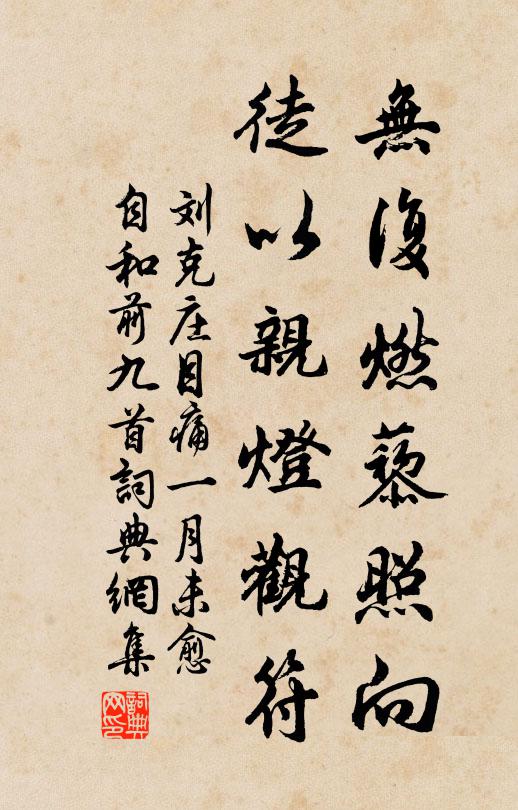 無復燃藜照向
徒以親燈觀符
刘克庄目痛一月未愈
自和前九首詞典網集
詞典网印